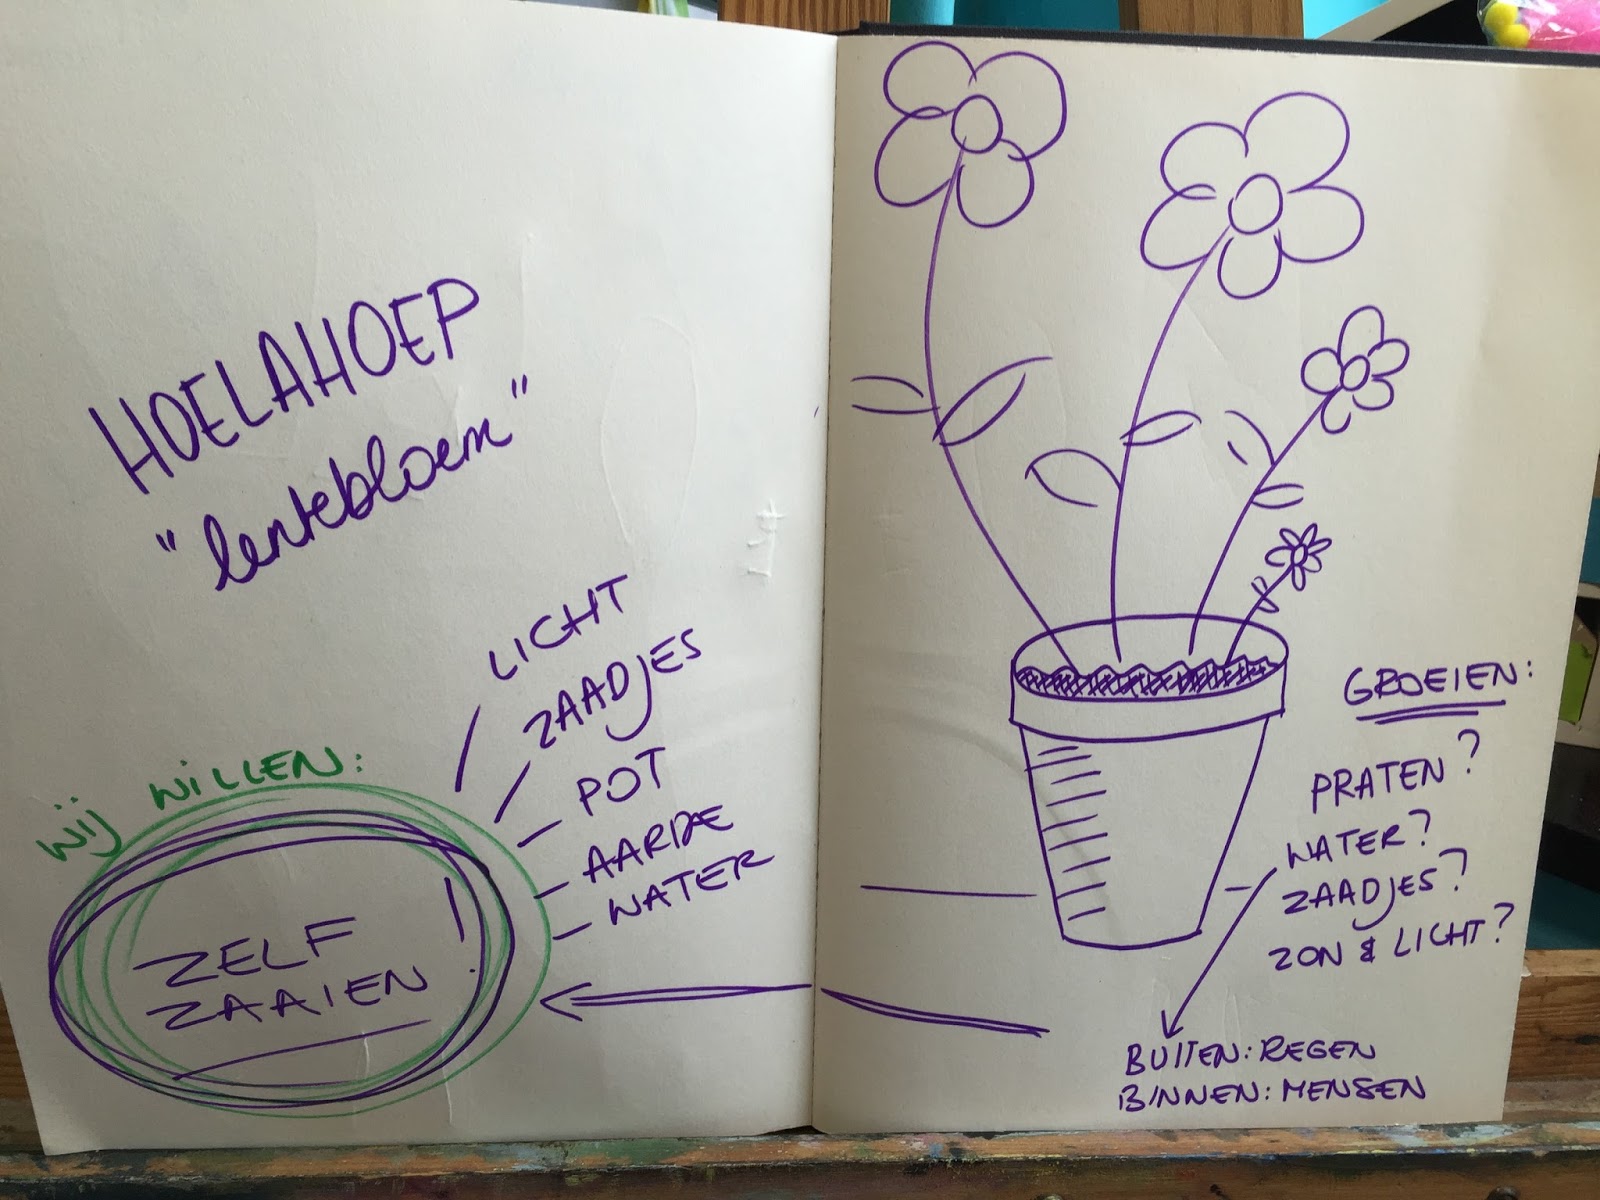 HOELAHOEP
"lentebloem"
LICHT
ZAADJES
POT
AARDE
WATER
Wij WILLEN:
ZELF
ZAAIEN!
GROEIEN:
PRATEN?
WATER?
ZAADJES?
ZON & LICHT?
BUITEN: REGEN
BINNEN: MENSEN